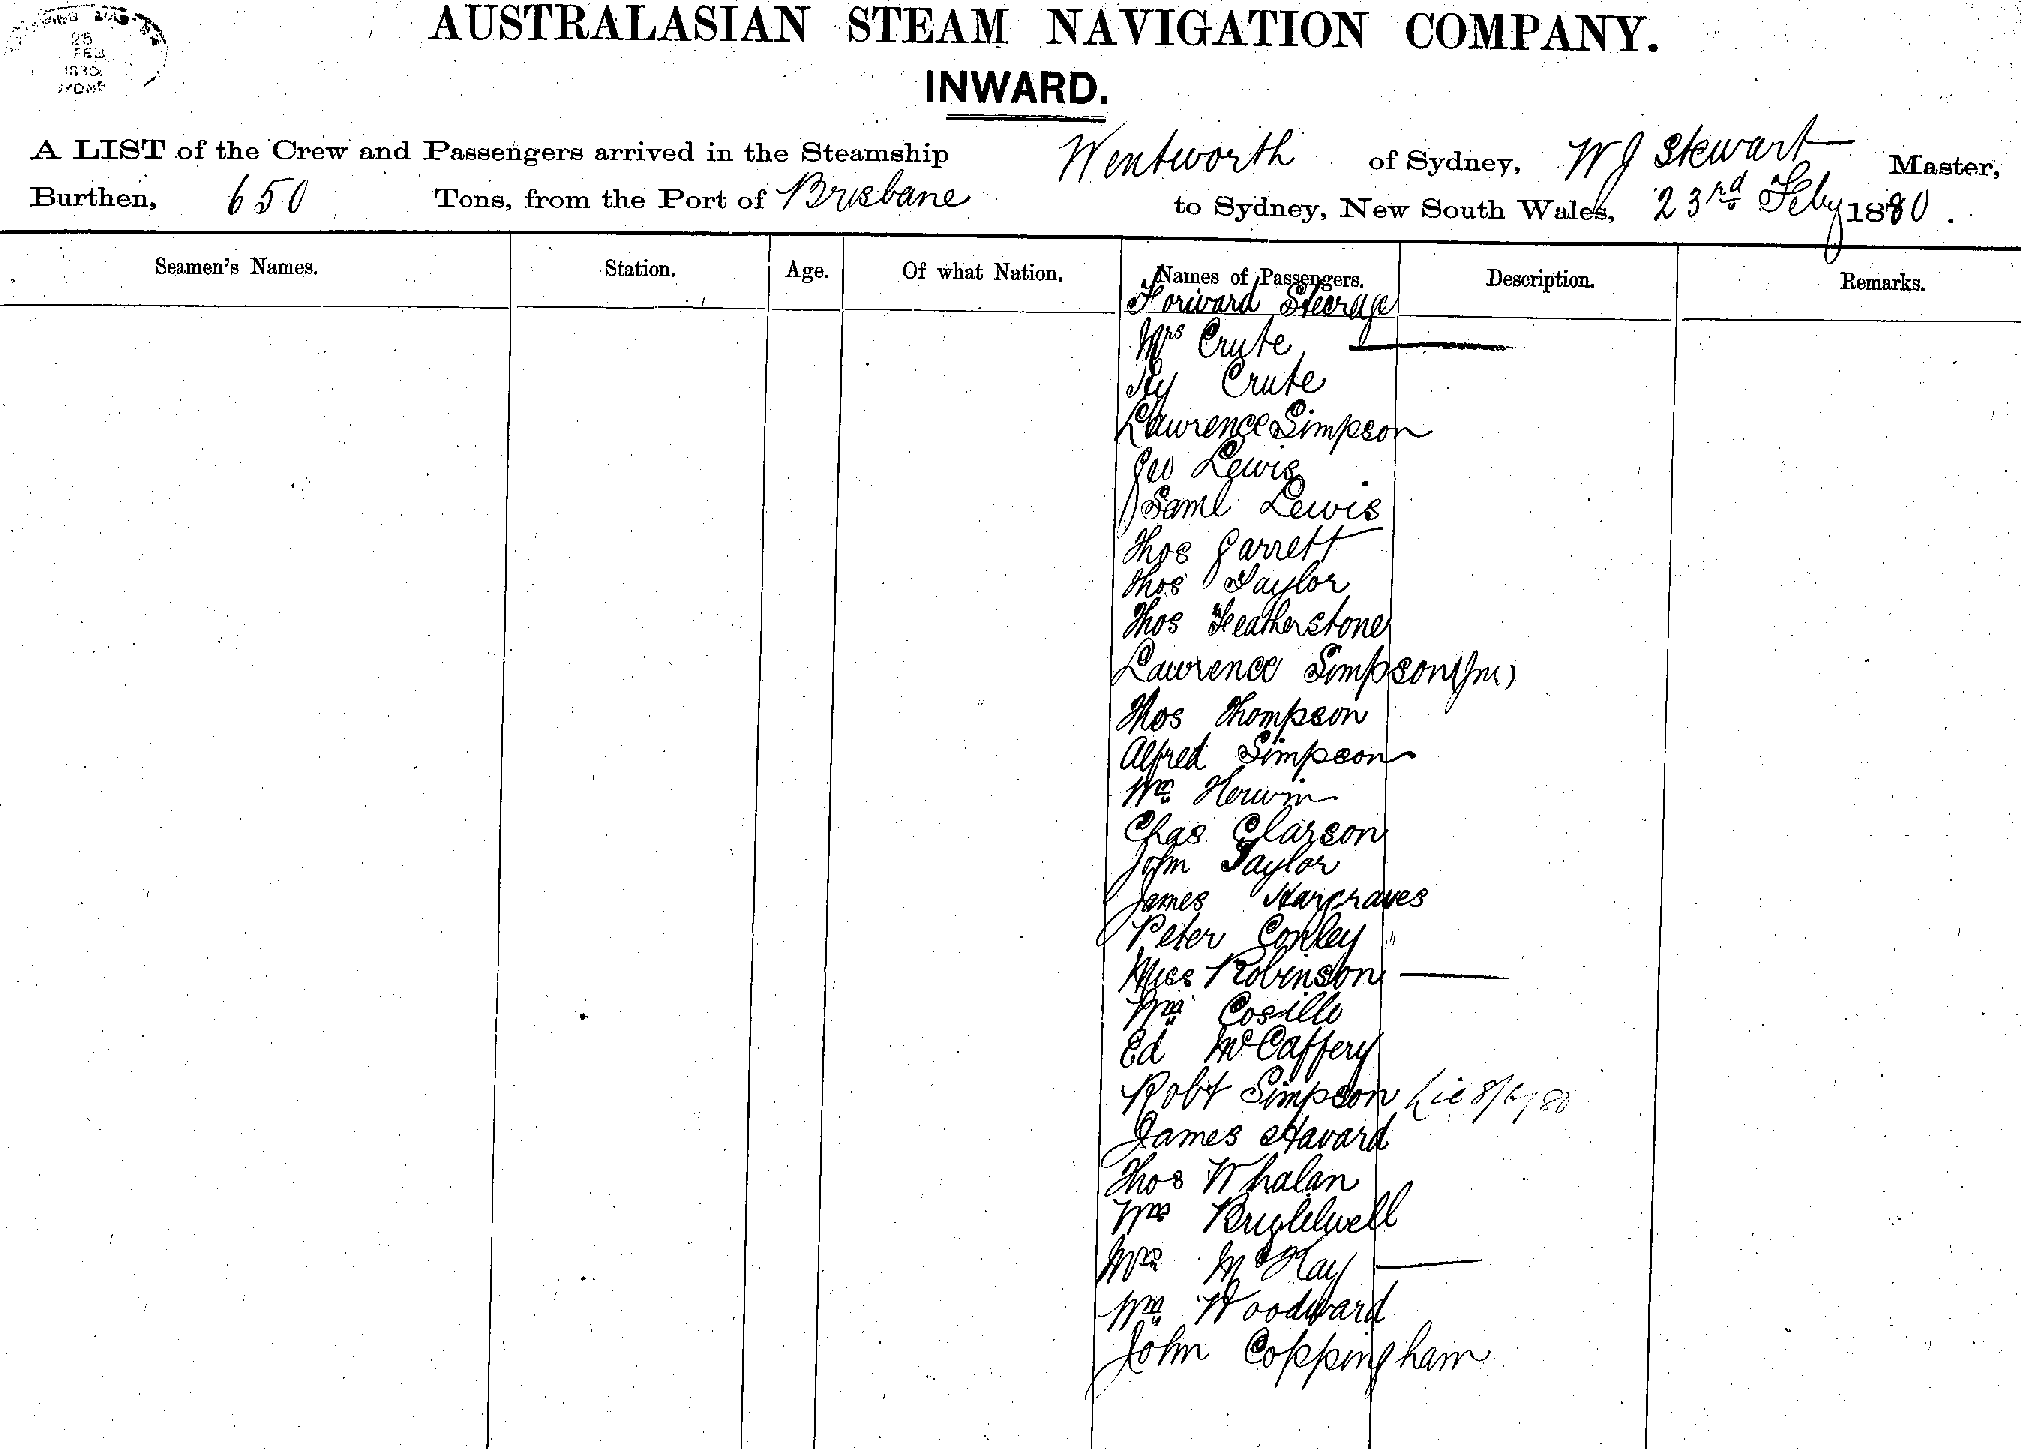 25
FEB
AUSTRALASIAN STEAM NAVIGATION COMPANY.
INWARD.
A LIST of the Crew and Passengers arrived in the Steamship Wentworth of Sydney, W J Stewart Master,
Burthen, 650 Tons, from the Port of Brisbane to Sydney, New South Wales, 23rd Feby 1880.
Seamen's Names. Station. Age. Of what Nation. Names of Passengers. Description. Remarks.
Forward Steerage
Mrs Crute
Hy Crute
Lawrence Simpson
Geo Lewis
Saml Lewis
Thos Garrett
Thos Taylor
Thos Featherstone
Lawrence Simpson (Jnr)
Thos Thompson
Alfred Simpson
Wm
Chas Clarson
John Taylor
James Hargraves
Peter Conley
Miss Robinson
Wm Cosillo
Ed McCaffery
Robt Simpson
James Havard
Thos Whalan
Wm
Mrs McKay
Wm Woodward
John Coppingham